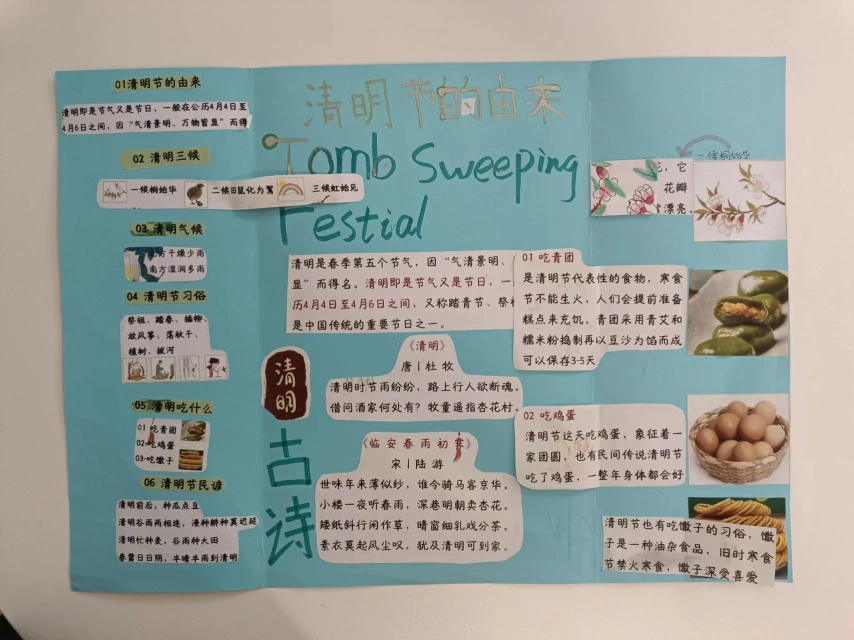 01清明节的由来
清明即是节气又是节日，一般在公历4月4日至
4月6日之间，因“气清景明、万物皆显”而得
02 清明三候
一候桐始华
二候田鼠化为鴽
三候虹始见
03 清明气候
北方干燥少雨
南方湿润多雨
04 清明节习俗
祭祖、踏春、插柳、
放风筝、荡秋千、
植树、拔河
05 清明吃什么
01 吃青团
02-吃鸡蛋
03-吃馓子
06 清明节民谚
清明前后，种瓜点豆
清明谷雨两相连，浸种耕种莫迟延
清明忙种麦，谷雨种大田
春雷日日阴，半晴半雨到清明
清明节的由来
Tomb Sweeping
Festial
清明是春季第五个节气，因“气清景明、
显”而得名。清明即是节气又是节日，一
历4月4日至4月6日之间，又称踏青节、祭祖
是中国传统的重要节日之一。
清明
古诗
《清明》
唐|杜牧
清明时节雨纷纷，路上行人欲断魂。
借问酒家何处有？牧童遥指杏花村。
《临安春雨初霁》
宋|陆游
世味年来薄似纱，谁令骑马客京华。
小楼一夜听春雨，深巷明朝卖杏花。
矮纸斜行闲作草，晴窗细乳戏分茶。
素衣莫起风尘叹，犹及清明可到家。
一候桐始华
，它
花瓣
漂亮。
01 吃青团
是清明节代表性的食物，寒食
节不能生火，人们会提前准备
糕点来充饥。青团采用青艾和
糯米粉捣制再以豆沙为馅而成
可以保存3-5天
02 吃鸡蛋
清明节这天吃鸡蛋，象征着一
家团圆，也有民间传说清明节
吃了鸡蛋，一整年身体都会好
清明节也有吃馓子的习俗，馓
子是一种油杂食品，旧时寒食
节禁火寒食，馓子深受喜爱